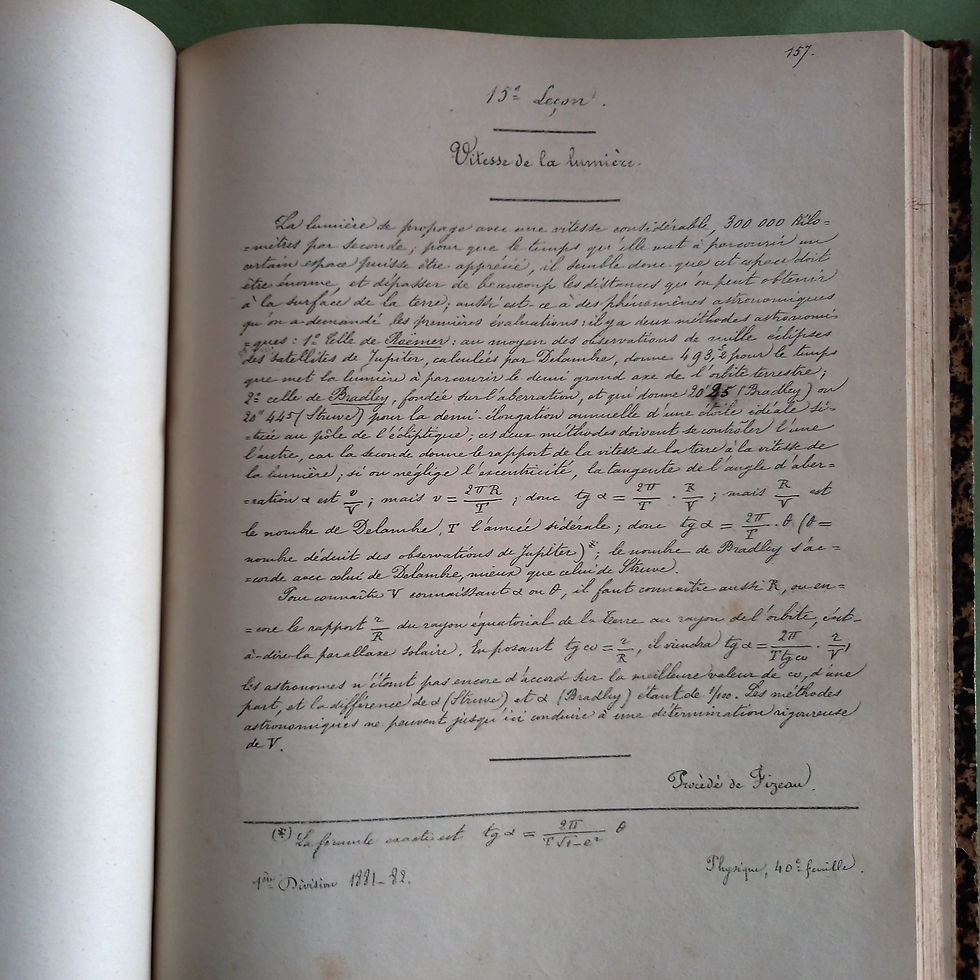 157.
15e Leçon.
Vitesse de la lumière.
La lumière se propage avec une vitesse considérable, 300 000 Kilo=
=mètres par seconde; pour que le temps qu'elle met à parcourir un
certain espace puisse être apprécié, il semble donc que cet espace doit
être énorme, et dépasser de beaucoup les distances qu'on peut obtenir
à la surface de la terre; aussi est-ce à des phénomènes astronomiques
qu'on a demandé les premières évaluations: il y a deux méthodes astronomi=
=ques: 1º Celle de Roëmer: au moyen des observations de mille éclipses
des satellites de Jupiter, calculées par Delambre, donne 493,s2 pour le temps
que met la lumière à parcourir le demi grand axe de l'orbite terrestre;
2º celle de Bradley, fondée sur l'aberration, et qui donne 20"25 (Bradley) ou
20"445 (Struve) pour la demi-élongation annuelle d'une étoile idéale si=
=tuée au pôle de l'écliptique; ces deux méthodes doivent se contrôler l'une
l'autre, car la seconde donne le rapport de la vitesse de la terre à la vitesse de
la lumière; si on néglige l'excentricité, la tangente de l'angle d'aber=
=ration α est v/V; mais v = 2πR/T; donc tg α = 2π/T · R/V; mais R/V est
le nombre de Delambre, T l'année sidérale; donc tg α = 2π/T · θ (θ =
nombre déduit des observations de Jupiter)*; le nombre de Bradley s'ac=
=corde avec celui de Delambre, mieux que celui de Struve.
Pour connaître V connaissant α ou θ, il faut connaître aussi R, ou en=
=core le rapport r/R du rayon équatorial de la Terre au rayon de l'orbite, c'est-
à-dire la parallaxe solaire. En posant tg ω = r/R, il viendra tg α = 2π/T tg ω · r/V,
les astronomes n'étant pas encore d'accord sur la meilleure valeur de ω, d'une
part, et la différence de α (Struve) et α (Bradley) étant de 1/100. Les méthodes
astronomiques ne peuvent jusqu'ici conduire à une détermination rigoureuse
de V.
Procédé de Fizeau.
(*) La formule exacte est tg α = 2π/T√1-e² θ
1ère Division 1881-82.
Physique, 40e feuille.